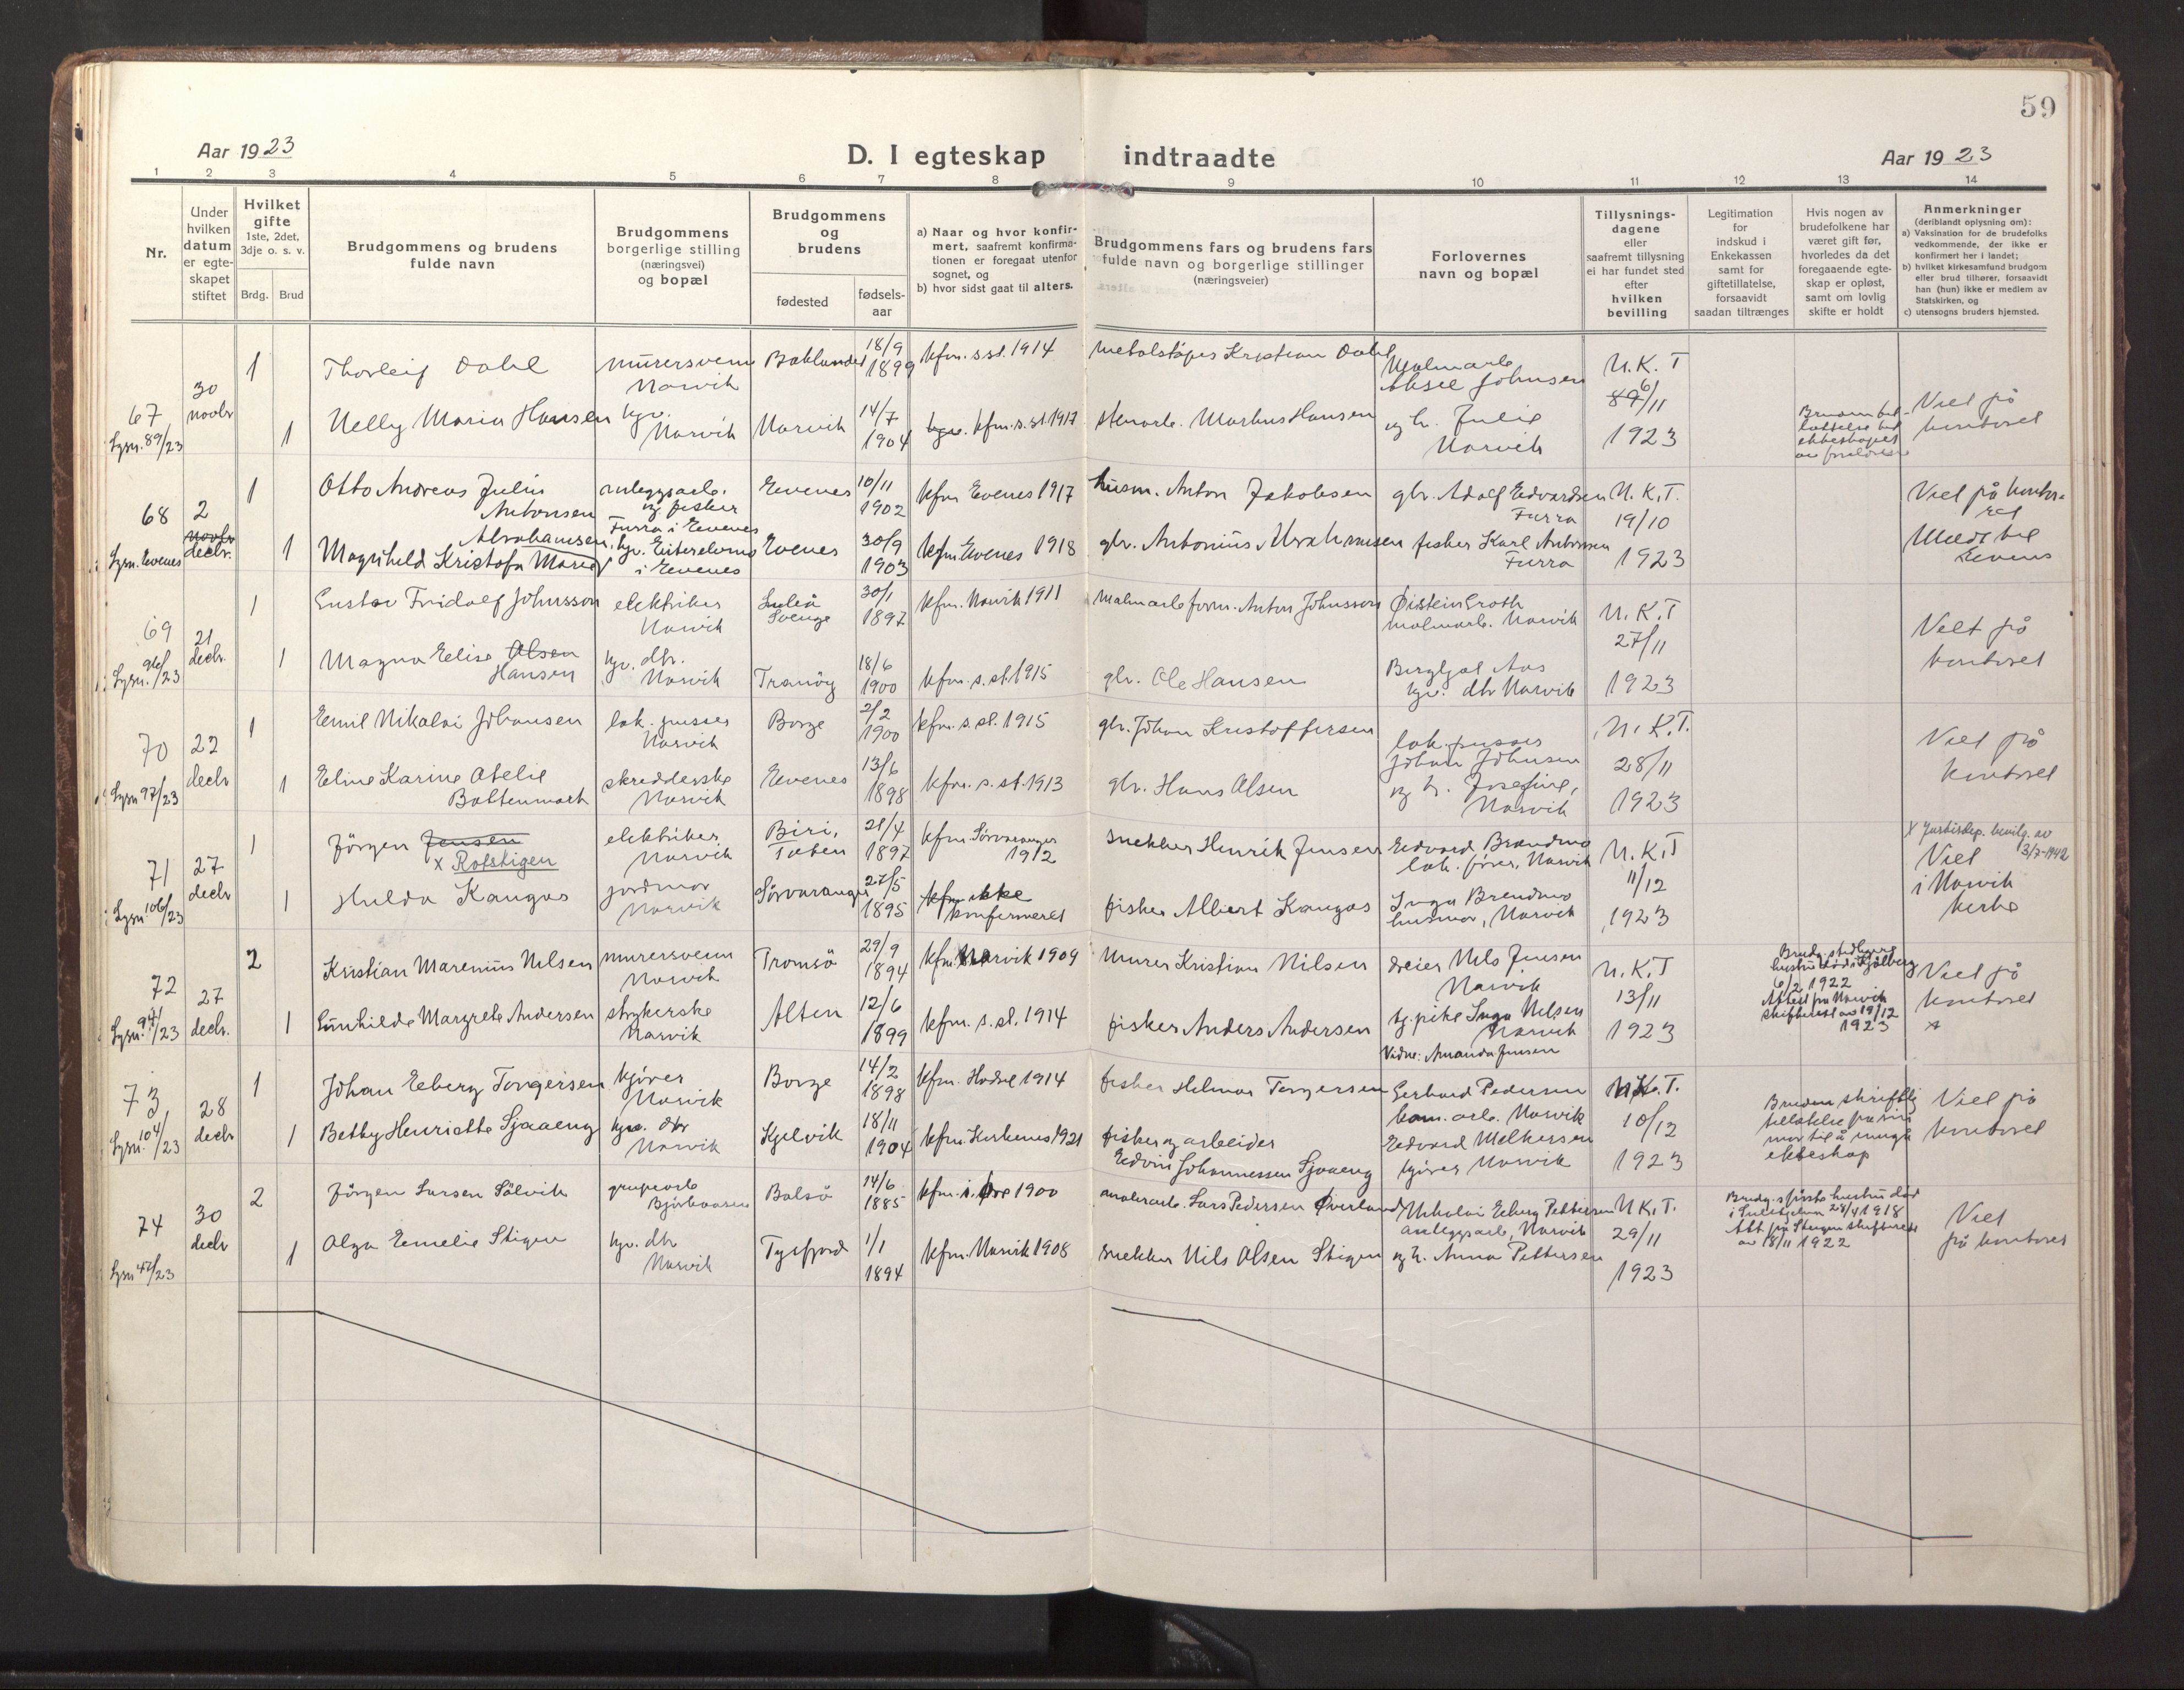 59
Aar 1923
D. I egteskap indtraadte
Aar 1923
1 2 3 4 5 6 7 8 9 10 11 12 13 14
Nr.
Under hvilken datum er egteskapet stiftet
Hvilket gifte 1ste, 2det, 3dje o. s. v.
Brdg. Brud
Brudgommens og brudens fulde navn
Brudgommens borgerlige stilling (næringsvei) og bopæl
Brudgommens og brudens
fødested
fødselsaar
a) Naar og hvor konfirmert, saafremt konfirmationen er foregaat utenfor sognet, og
b) hvor sidst gaat til alters.
Brudgommens fars og brudens fars fulde navn og borgerlige stillinger (næringsveier)
Forlovernes navn og bopæl
Tillysningsdagene eller saafremt tillysning ei har fundet sted efter hvilken bevilling
Legitimation for indskud i Enkekassen samt for giftetillatelse, forsaavidt saadan tiltrænges
Hvis nogen av brudefolkene har været gift før, hvorledes da det foregaaende egteskap er opløst, samt om lovlig skifte er holdt
Anmerkninger (deriblandt oplysning om):
a) Vaksination for de brudefolks vedkommende, der ikke er konfirmert her i landet;
b) hvilket kirkesamfund brudgom eller brud tilhører, forsaavidt han (hun) ikke er medlem av Statskirken, og
c) utensogns bruders hjemsted.
67 Lysn. 89/23
30 novbr
1 Thorleif Dahl murersvenn Narvik Baklandet 18/9 1899 kfm. s.st. 1914 metalstøper Kristian Dahl
Malmarb. Aksel Johnsen og h. Julie Narvik
U.K.T 6/11 1923
1 Nelly Maria Hansen hjv. Narvik Narvik 14/7 1904 kfm. s. st. 1917 stenarb. Markus Hansen
Viel på kontoret
68 Lysn. Evenes
2 novbr decbr.
1 Otto Andreas Julin Antonsen anleggsarb. og fisker Furra i Evenes Evenes 10/11 1902 kfm Evenes 1917 husm. Anton Jakobsen
gbr. Adolf Edvardsen Furra
U.K.T. 19/10 1923
1 Magnhild Kristofa Marie Abrahamsen hjv. i Evenes Evenes 30/9 1903 kfm Evenes 1918 gbr. Antonius Abrahamsen
fisker Karl Antonsen Furra
Viel på kontoret
Meldt til Evenes
69 Lysn. 96/23
21 decbr.
1 Gustav Fridolf Johnsson elektriker Narvik Luleå Sverige 30/1 1897 kfm. Narvik 1911 malmarb.form. Anton Johnsson
Øistein Groth malmarb. Narvik
U.K.T 27/11 1923
1 Magna Elise Olsen Hansen hjv. dtr. Narvik Tranøy 18/6 1900 kfm. s. st. 1915 gbr. Ole Hansen
Bergljot Aas hjv. dtr Narvik
Viet på kontoret
70 Lysn 97/23
22 decbr
1 Emil Nikolai Johansen lok. pusser Narvik Borge 2/2 1900 kfm. s. st. 1915 gbr. Johan Kristoffersen
lok. pusser Johan Johnsen og h. Josefine, Narvik
U.K.T. 28/11 1923
1 Eline Karine Otelie Boltenmark skredderske Narvik Evenes 13/6 1898 kfm. s. st. 1913 gbr. Hans Olsen
Viel på kontoret
71 Lysn. 106/23
27 decbr
1 Jörgen Jensen x Rolstigen elektriker Narvik Biri, Toten 21/4 1897 kfm Sørvaranger 1912 snekker Henrik Jensen
Edvard Brendmo lok. fører, Narvik
U.K.T 11/12 1923
1 Hulda Kangas jordmor Narvik Sørvaranger 27/5 1895 kfm ikke konfirmeret fisker Albert Kangas
Inga Brendmo husmor, Narvik
x Justisdep. bevilg. av 3/7-1942
Viel i Narvik kirke
72 Lysn. 94/23
27 decbr.
2 Kristian Marenius Nilsen murersvenn Narvik Tromsö 29/9 1894 kfm. Narvik 1909 Murer Kristian Nilsen
dreier Nils Jensen Narvik
U.K.T 13/11 1923
1 Gunhilda Margrete Andersen strykerske Narvik Alten 12/6 1899 kfm. s. st. 1914 fisker Anders Andersen
tj.pike Inga Nilsen Narvik
Vidne: Amanda Jensen
6/2 1922
Attest fra Narvik skifterett av 19/12 1923
Viel på kontoret
x
73 Lysn. 104/23
28 decbr
1 Johan Edberg Torgersen kjører Narvik Borge 14/2 1898 kfm. Hadsel 1914 fisker Helmar Torgersen
Gerhard Pedersen kom. arb. Narvik
U.K.T. 10/12 1923
1 Betty Henriette Sjaaeng hjv. dtr Narvik Kjelvik 18/11 1904 kfm. Kirkenes 1921 fisker og arbeider Edvin Johannessen Sjaaeng
Edvard Melkersen kjører Narvik
Bruden skriftlig tillatelse fra sin mor til å inngå ekteskap
Viel på kontoret
74 Lysn 47/23
30 decbr
2 Jörgen Larsen Sölvik grubearb Bjørkaasen Balsö 14/6 1885 kfm. 1900 Lars Pedersen Øverland
Nikolai Edberg Pettersen anleggsarb, Narvik og h. Anna Pettersen
U.K.T. 29/11 1923
1 Olga Emelie Stigen hjv. dtr Narvik Tysfjord 1/1 1894 kfm. Narvik 1908 snekker Nils Olsen Stigen
Brudg.s første hustru død i Sulitjelma 28/4 1918
Att fra skifterett av 18/11 1922
Viel på kontoret